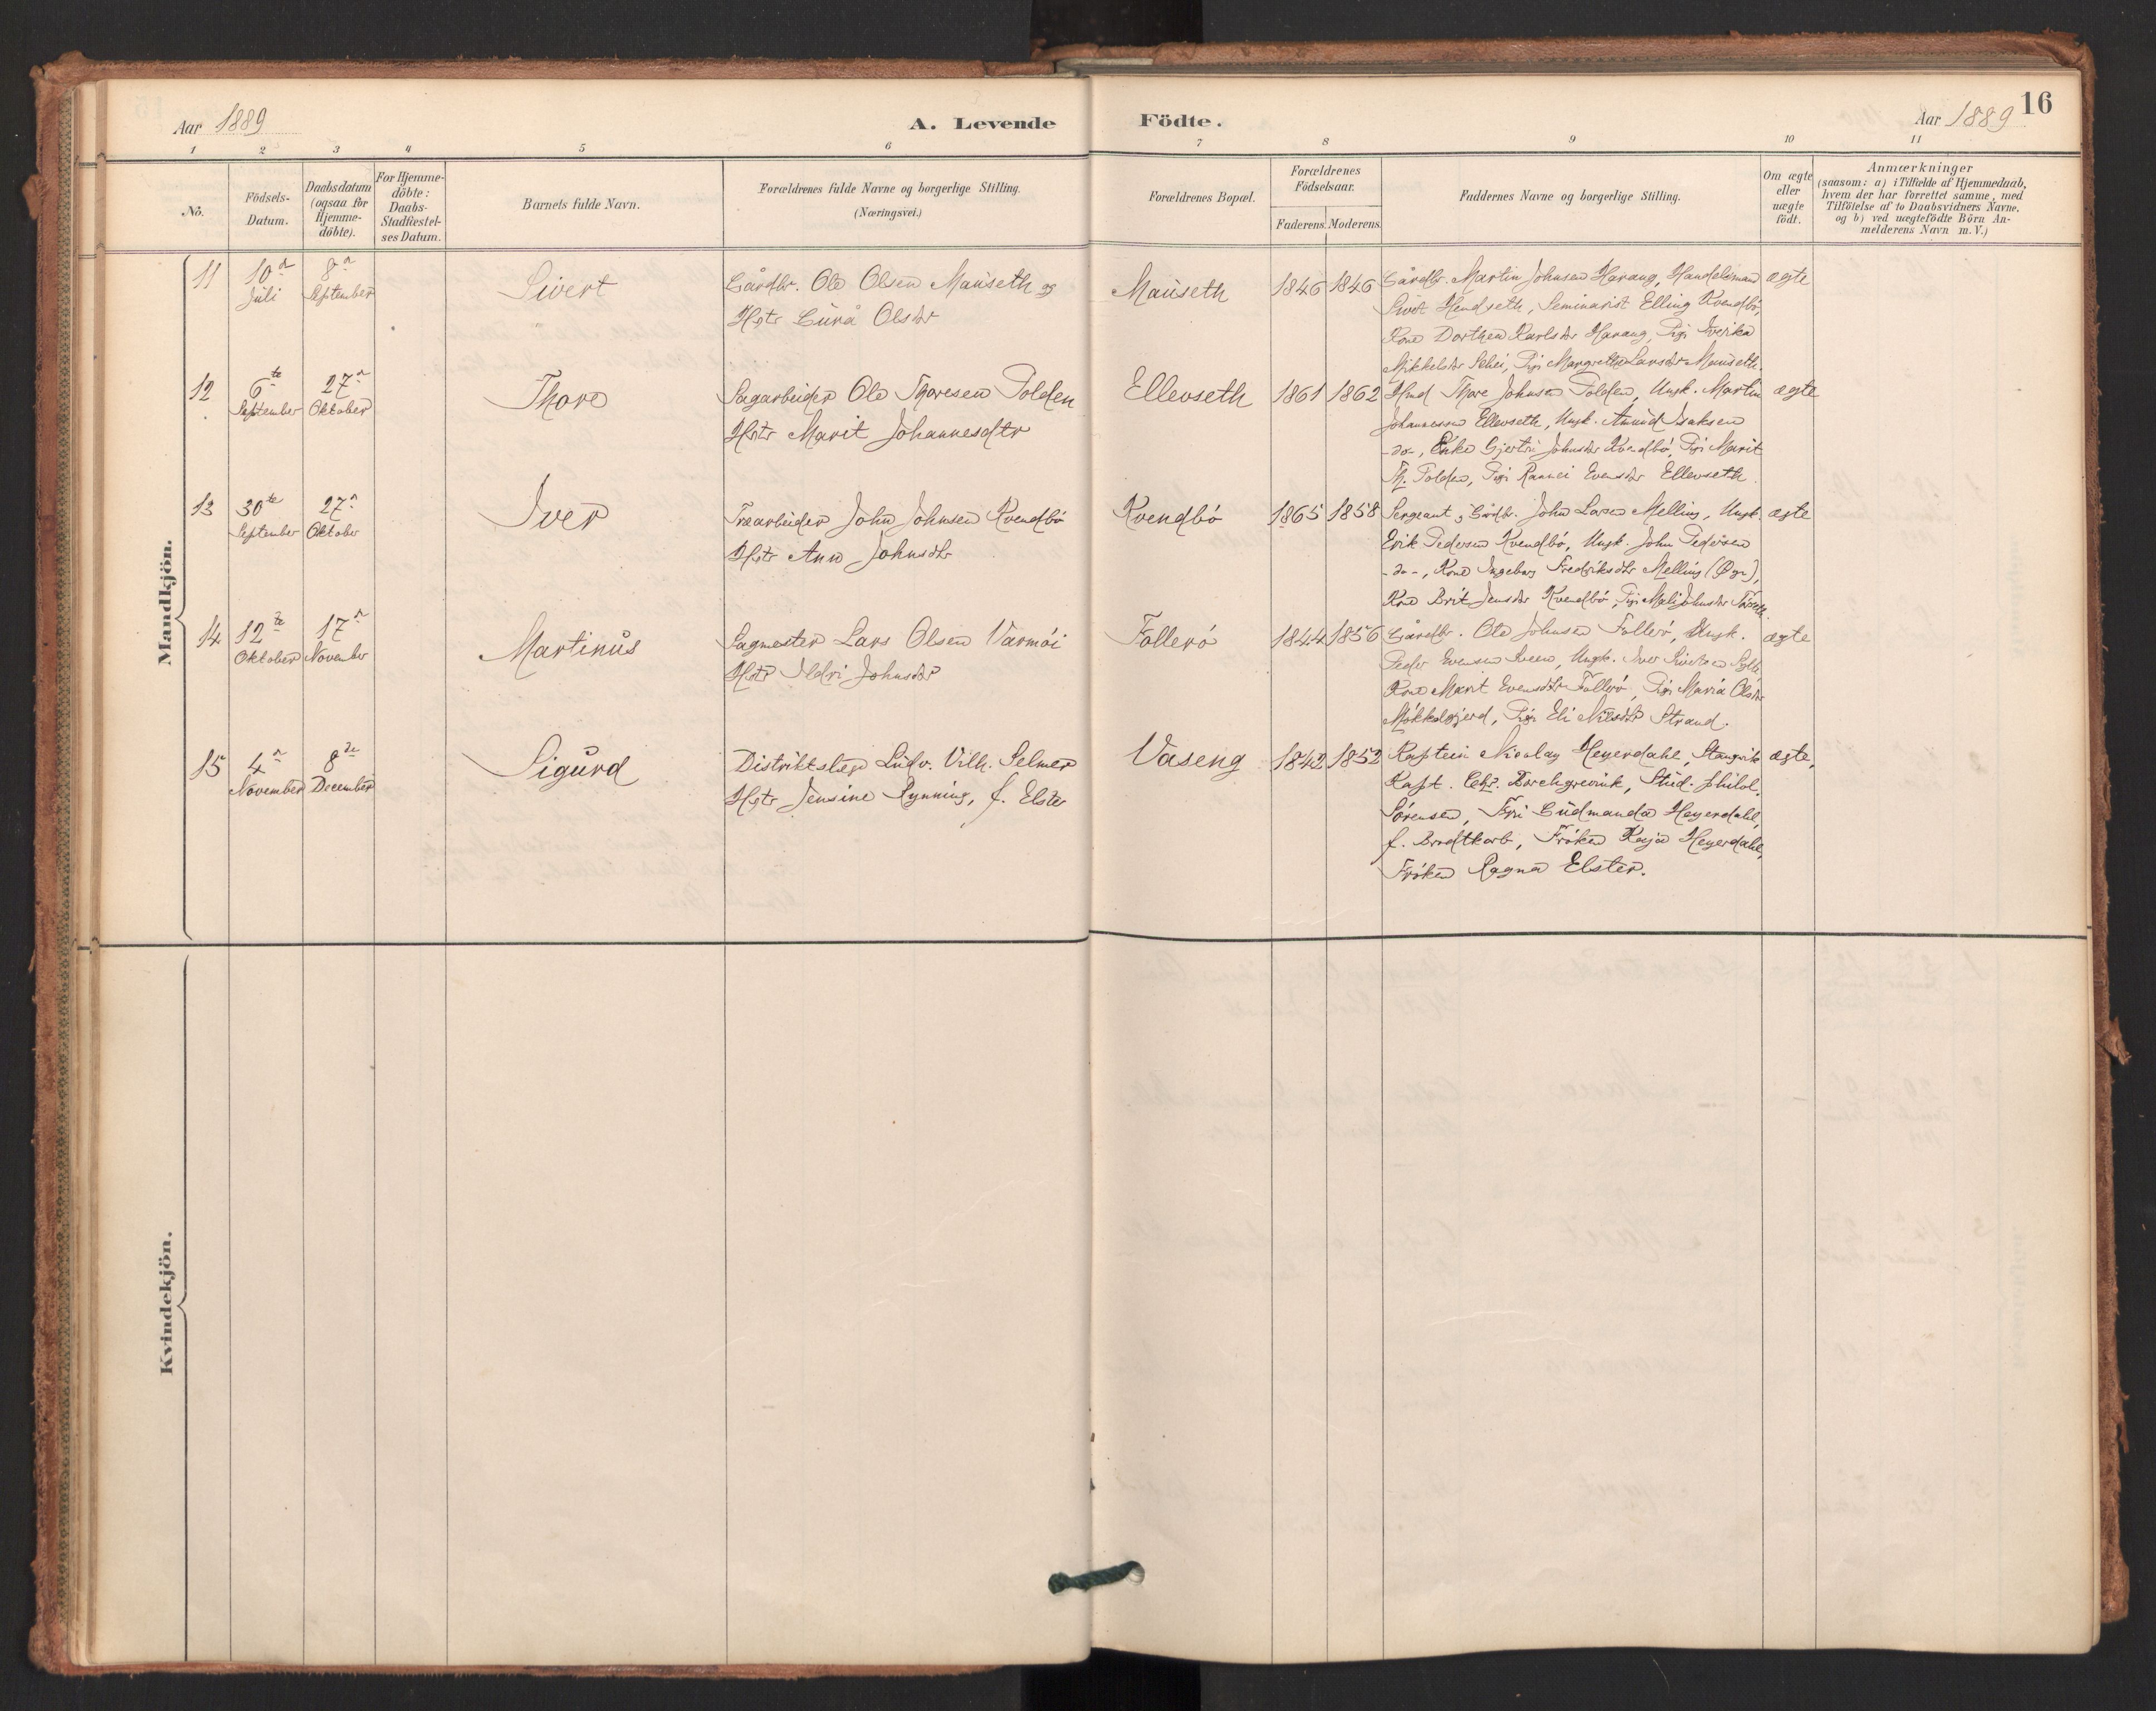 Aar 1889
A. Levende Födte.
Aar 1889
16
1 2 3 4 5 6 7 8 9 10 11
No.
Födsels-
Datum.
Daabsdatum
(ogsaa for
Hjemme-
döbte).
For Hjemme-
döbte:
Daabs-
Stadfæstel-
ses Datum.
Barnets fulde Navn.
Forældrenes fulde Navne og borgerlige Stilling.
(Næringsvei.)
Forældrenes Bopæl.
Forældrenes
Födselsaar.
Faderens. Moderens.
Faddernes Navne og borgerlige Stilling.
Om ægte
eller
uægte
födt.
Anmærkninger
(saasom: a) i Tilfælde af Hjemmedaab,
hvem der har forrettet samme, med
Tilföielse af to Daabsvidners Navne.
og b) ved uægtefödte Börn An-
melderens Navn m. V.)
Mandkjön.
11
10de
Juli
8de
September
Sivert
Gårdbr. Ole Olsen Mauseth og
Hstr Gurå Olsdtr
Mauseth
1846 1846
Gårdbr. Martin Johnsen Harang, Handelsmand
Sivert Hendseth, Seminarist Elling Kvendbö,
Kone Dorthea Karlsdtr Harang, Pige Sverika
Mikkelsdtr Schei, Pige Margrethe Larsdtr Mauseth.
ægte
12
6te
September
27de
Oktober
Thore
Sagarbeider Ole Thoresen Tolden
Hstr Marit Johannesdtr
Ellevseth
1861 1862
Hmd Thore Johnsen Tolden, Ungk. Martin
Johannessen Ellevseth, Ungk. Amund Isaksen
-do-, Enke Gjertru Johnsdtr Kvendbö, Pige Marit
Th. Tolden, Pige Rannei Evensdtr Ellevseth.
ægte
13
30te
September
27de
Oktober
Iver
Træarbeider John Johnsen Kvendbö
Hstr Ane Johnsdtr
Kvendbö
1865 1858
Sergeant og Gårdbr. John Larsen Melling, Ungk.
Erik Pedersen Kvendbö, Ungk. John Pedersen
-do-, Kone Ingeborg Fredriksdtr Melling (Öyr),
Kone Brit Jensdtr Kvendbö, Pige Mali Johnsdtr
ægte
14
12te
Oktober
17de
November
Martinus
Sagmester Lars Olsen Varmöi
Hstr Ildri Johnsdtr
Follerö
1844 1856
Gårdbr. Ole Johnsen Follerö, Ungk.
Peder Evensen Sveen, Ungk. Iver Sivertsen
Kone Marit Evensdtr Follerö, Pige Maria Olsdtr
Mökkelgjerd, Pige Eli Nilsdtr Strand.
ægte
15
4de
November
8de
December
Sigurd
Distriktslæge Ludv. Vilh. Selmer
Hstr Jensine Rynning, f. Elster
Vaseng
1842 1852
Kaptein Nicolay Heyerdahl, Stangvik
Kapt. Chr. Borchgrevink, Stud. philol.
Sörensen, Fru Gudmanda Heyerdahl,
f. Brodtkorb, Fröken Kaja Heyerdahl,
Fröken Ragna Elster.
ægte,
Kvindekjön.